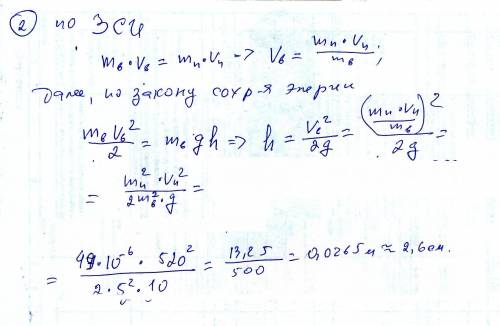 ② по ЗСИ
m_в · V_в = m_п · V_п -> V_в = (m_п · V_п) / m_в ;
Далее, по закону сохр-я энергии
(m_в V_в²) / 2 = m_в g h => h = V_в² / 2g = ((m_п · V_п) / m_в)² / 2g =
= (m_п² · V_п²) / (2 m_в² · g) =
= (49 · 10⁻⁶ · 520²) / (2 · 5² · 10) = 13,25 / 500 = 0,0265 м ≈ 2,6 см.